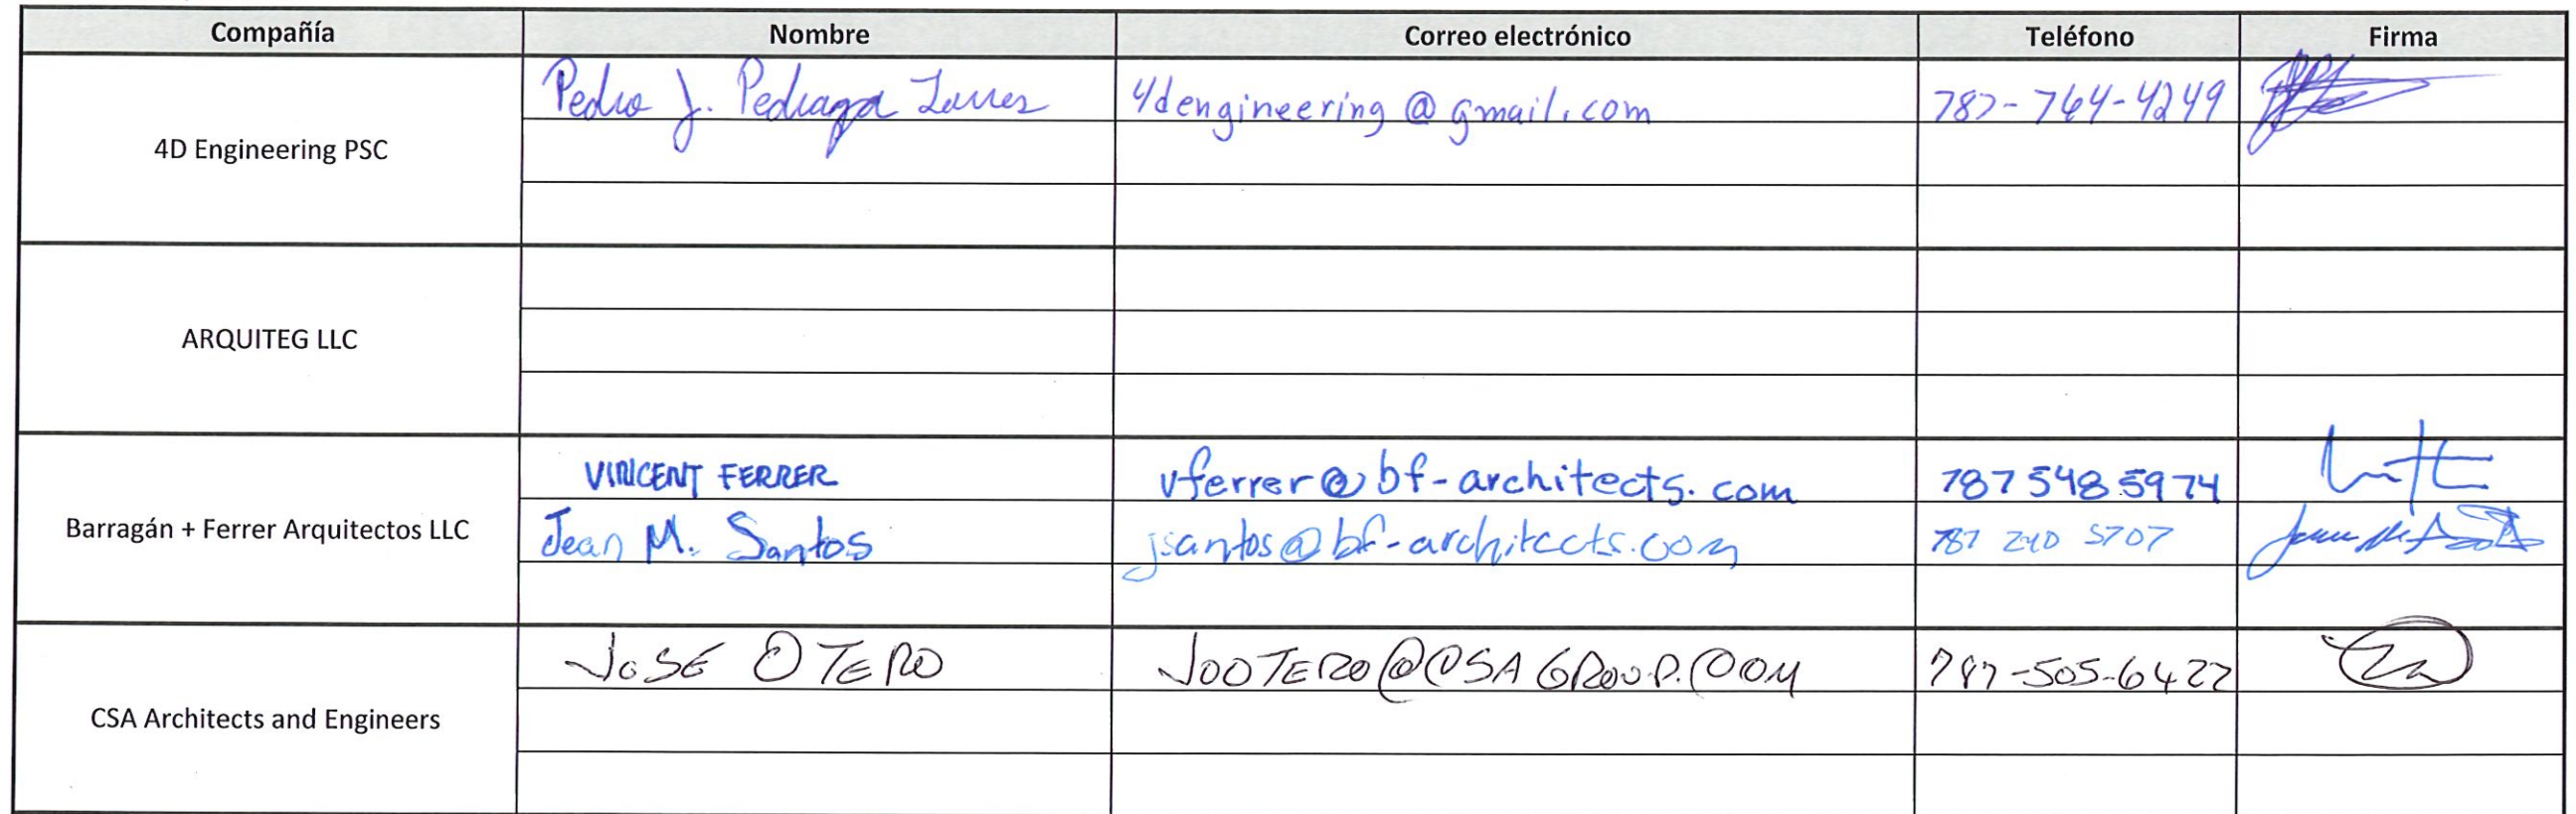 Compañía Nombre Correo electrónico Teléfono Firma
4D Engineering PSC Pedro J. Pedraza Torres 4dengineering@gmail.com 787-764-4249
ARQUITEG LLC
Barragán + Ferrer Arquitectos LLC VINCENT FERRER vferrer@bf-architects.com 787 548 5974
Jean M. Santos jsantos@bf-architects.com 787 240 5707
CSA Architects and Engineers JOSÉ OTERO JOOTERO@CSAGROUP.COM 787-505-6422